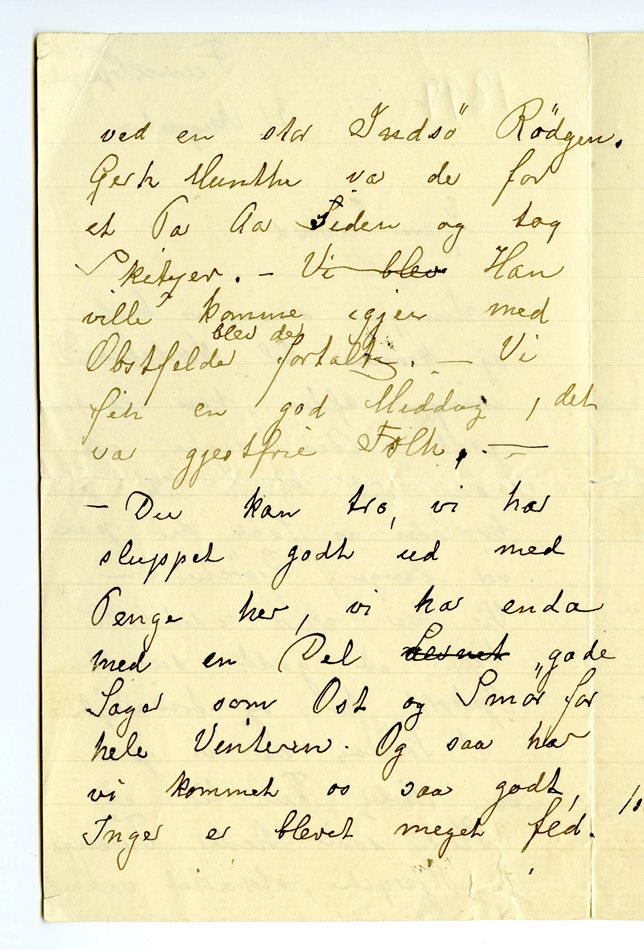 ved en stor Indsö Rödgen.
Gerh Munthe va de for
et Pa Aar Siden og tog
Skitser. – Vi blev Han
ville komme igjen med
blev der
Obstfelde fortalt. — Vi
fik en god Middag, det
va gjestfrie Folk. —
– Du kan tro, vi har
sluppet godt ud med
Penge her, vi har enda
med en Del „gode
Sager som Ost og Smör for
hele Vinteren. Og saa har
vi kommet os saa godt,
Inger er blevet meget fed.